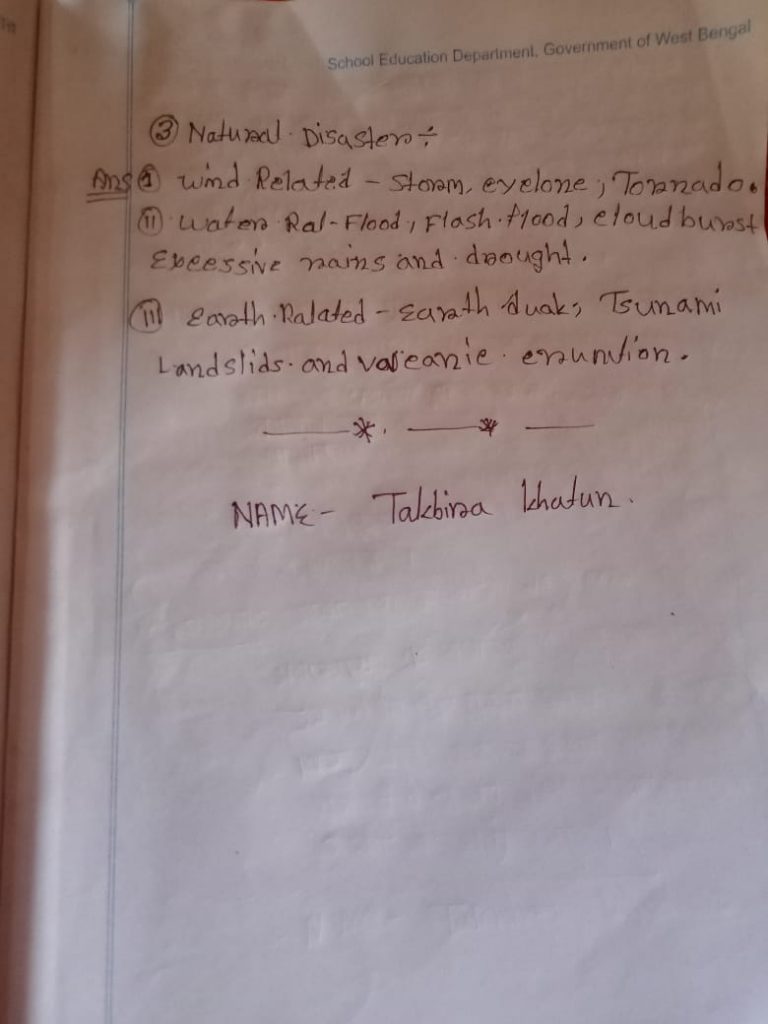 School Education Department. Government of West Bengal
③ Natural Disaster ÷
Ans ① Wind Related – Storm, cyclone, Tornado.
⑪ Water Ral - Flood, Flash flood, cloud burst
Excessive rains and drought.
⑪ Earth Ralated – Earth quak, Tsunami
Landslids and
NAME – Takbira Khatun.